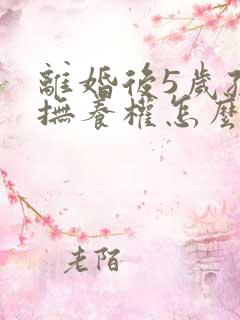 離婚後5歲
撫養權怎麼
老陌